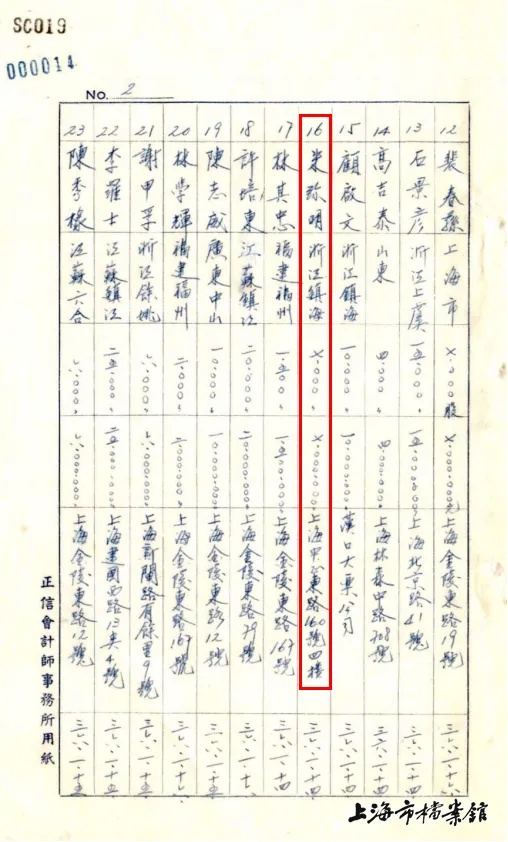 SC019
000014
No. 2
12 裴春蓀 上海市 七.〇〇〇股 七.〇〇〇.〇〇〇元 上海金陵東路19號 三六、一、十六
13 石景彦 浙江上虞 一五.〇〇〇〃 一五.〇〇〇.〇〇〇〃 上海北京路41號 三六、一、十四
14 高吉泰 山東 四.〇〇〇〃 四.〇〇〇.〇〇〇〃 上海林森中路708號 三六、一、十四
15 顧啟文 浙江鎮海 一〇.〇〇〇〃 一〇.〇〇〇.〇〇〇〃 漢口大業公司 三六、一、十四
16 朱弥明 浙江鎮海 七.〇〇〇〃 七.〇〇〇.〇〇〇〃 上海中正東路160號四樓 三六、一、十四
17 林其忠 福建福州 一.五〇〇〃 一.五〇〇.〇〇〇〃 上海金陵東路167號 三六、一、十四
18 許培東 江蘇鎮江 二〇.〇〇〇〃 二〇.〇〇〇.〇〇〇〃 上海金陵東路79號 三六、一、十七
19 陳志威 廣東中山 一〇.〇〇〇〃 一〇.〇〇〇.〇〇〇〃 上海金陵東路12號 三六、一、十五
20 林學輝 福建福州 二.〇〇〇〃 二.〇〇〇.〇〇〇〃 上海金陵東路167號 三六、一、十七
21 謝甲孚 浙江餘姚 六.〇〇〇〃 六.〇〇〇.〇〇〇〃 上海新閘路有餘里9號 三六、一、十五
22 李羅士 江蘇鎮江 二五.〇〇〇〃 二五.〇〇〇.〇〇〇〃 上海建國西路13弄4號 三六、一、十五
23 陳季樑 江蘇六合 六.〇〇〇〃 六.〇〇〇.〇〇〇〃 上海金陵東路12號 三六、一、十五
正信會計師事務所用紙
上海市檔案館